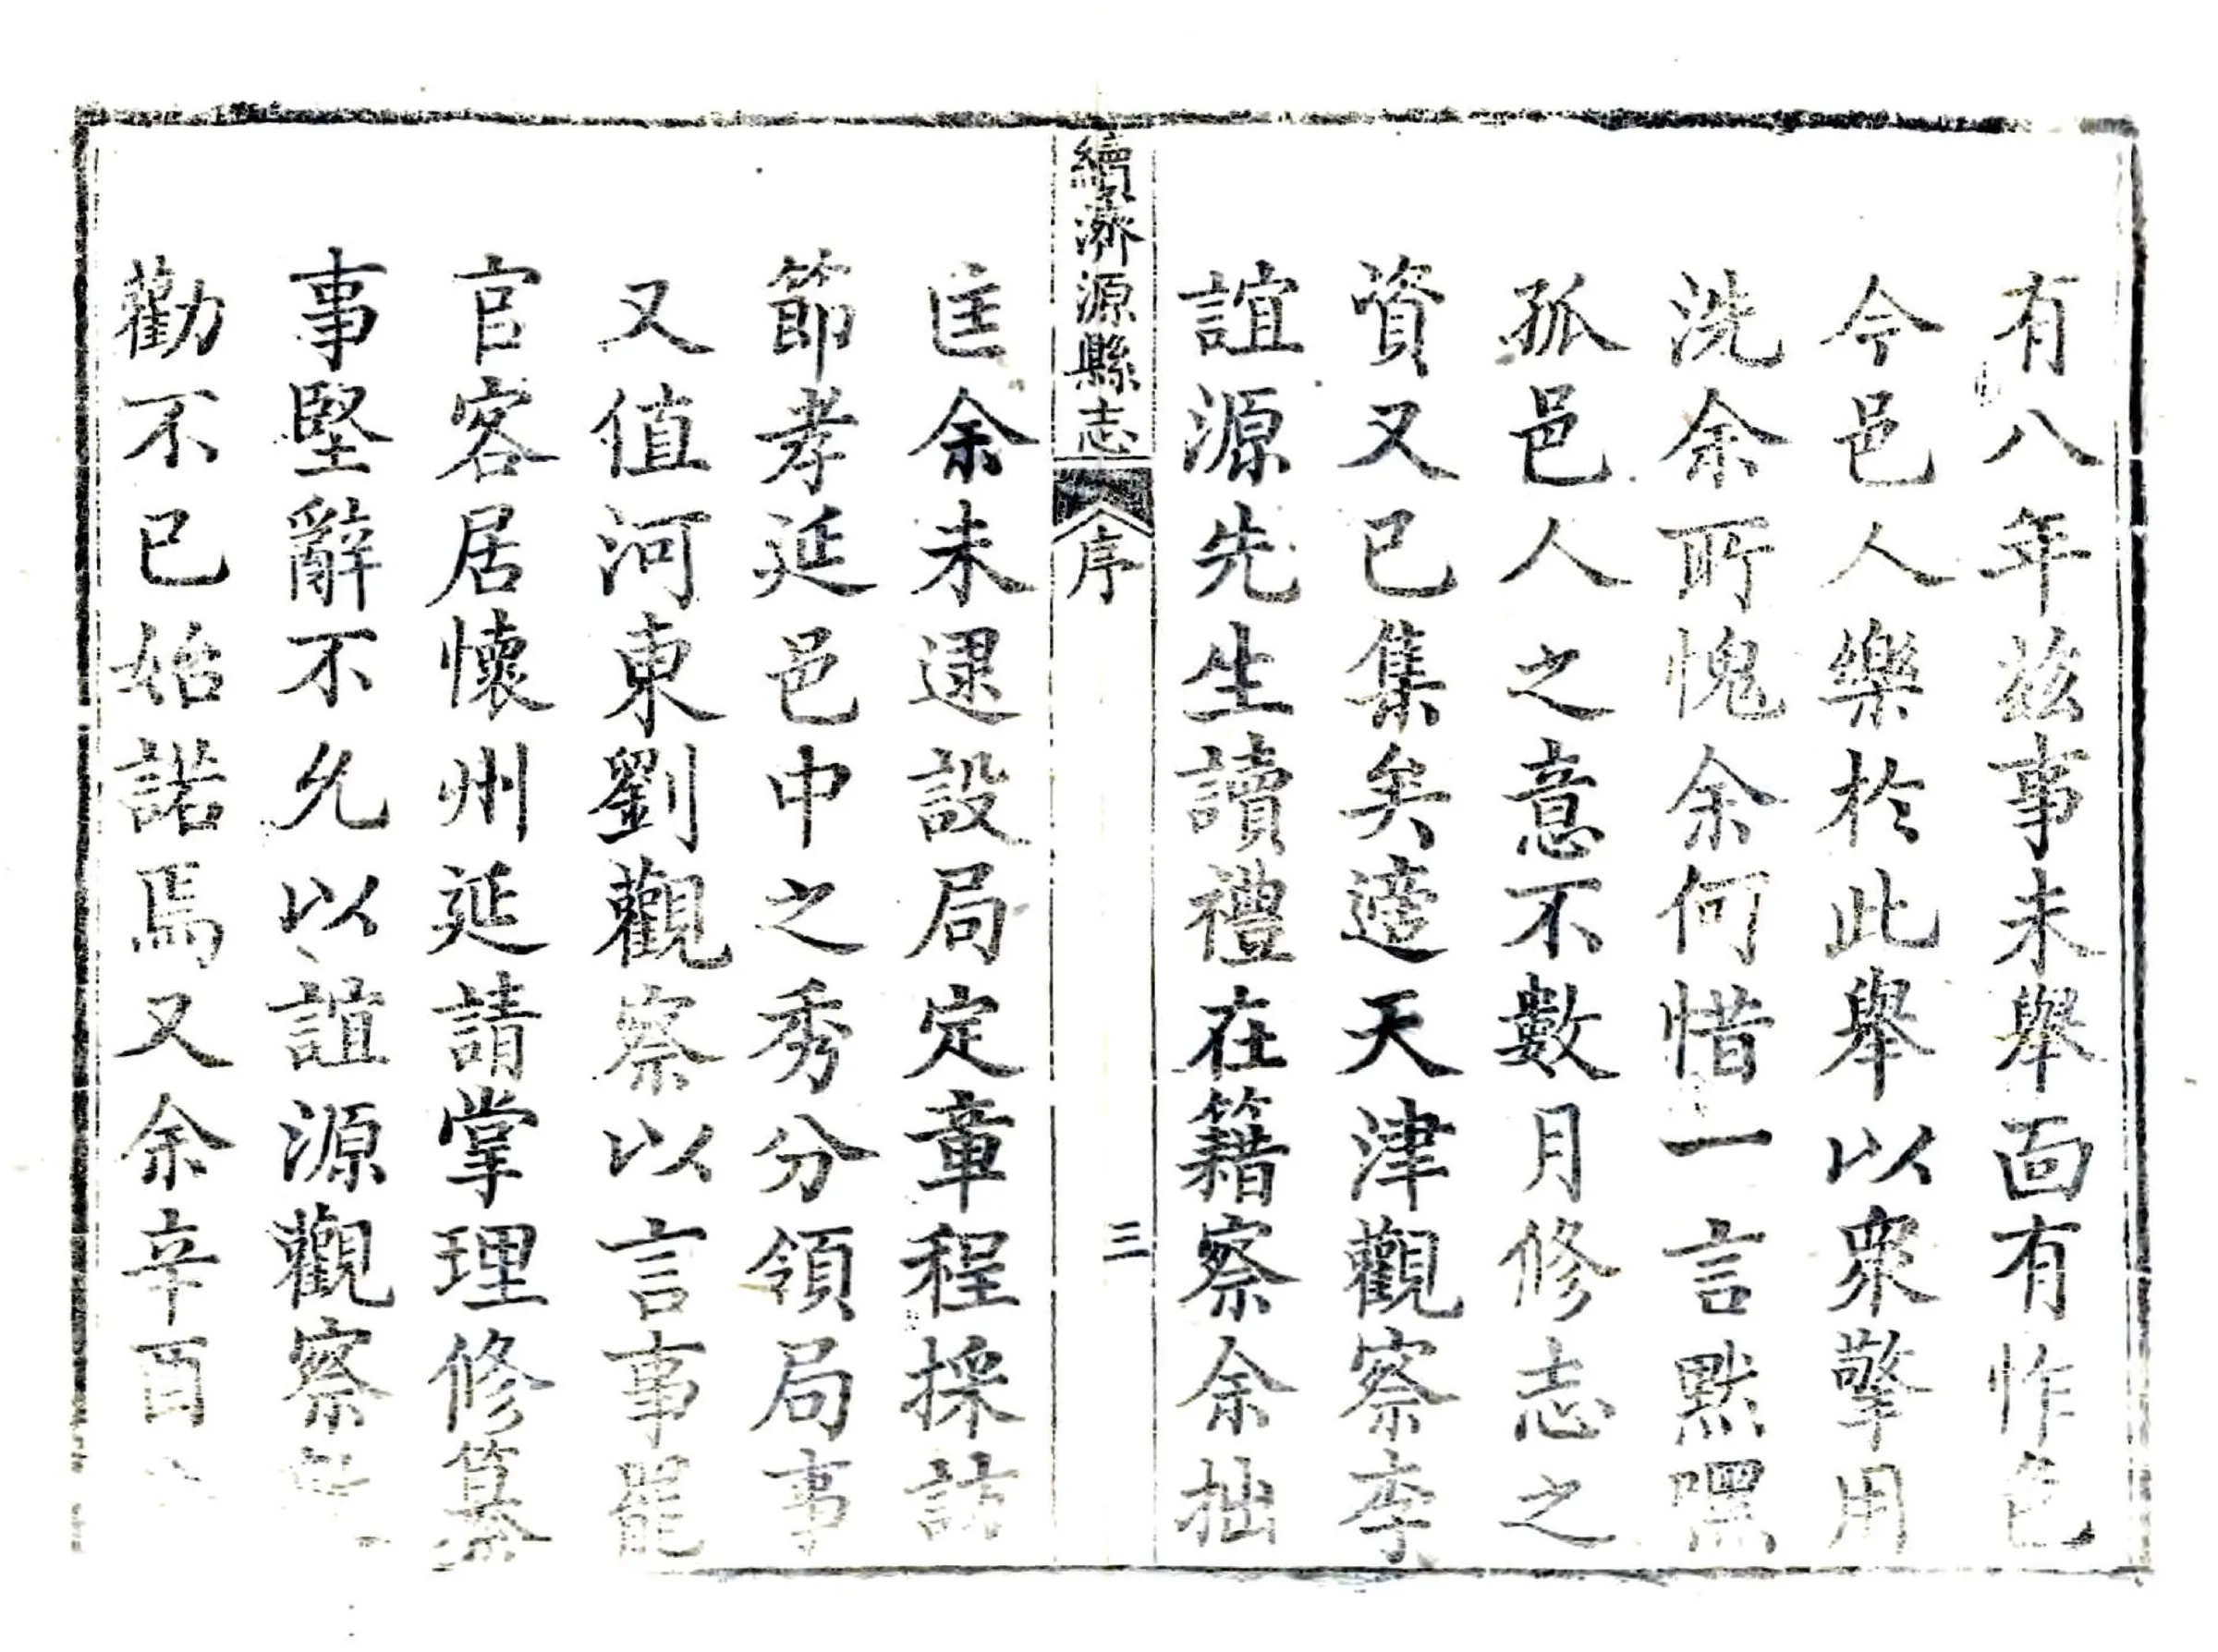 有八年茲事未舉面有怍色
今邑人樂於此舉以衆擎用
洗余所愧余何惜一言默嘿
孤邑人之意不數月修志之
資又已集矣適天津觀察李
誼源先生讀禮在籍察余拙
續濟源縣志
序
三
匡余未逮設局定章程採訪
節孝延邑中之秀分領局事
又值河東劉觀察以言事罷
官客居懷州延請掌理修纂
事堅辭不允以誼源觀察
勸不已始諾焉又余辛酉